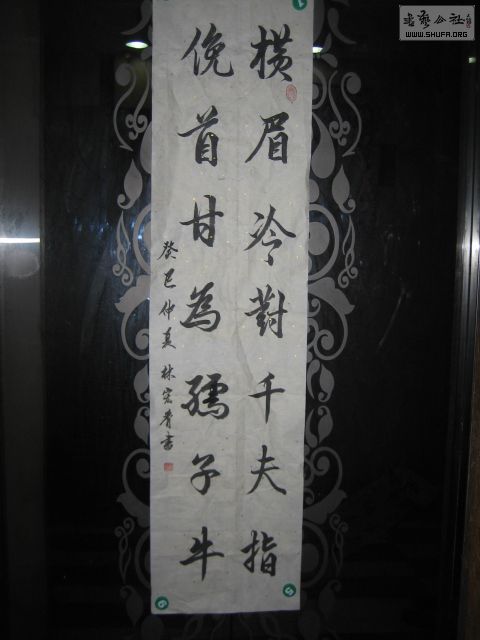 橫眉冷對千夫指
俛首甘為孺子牛
癸巳仲夏林宏青書
書藝公社
WWW.SHUFA.ORG